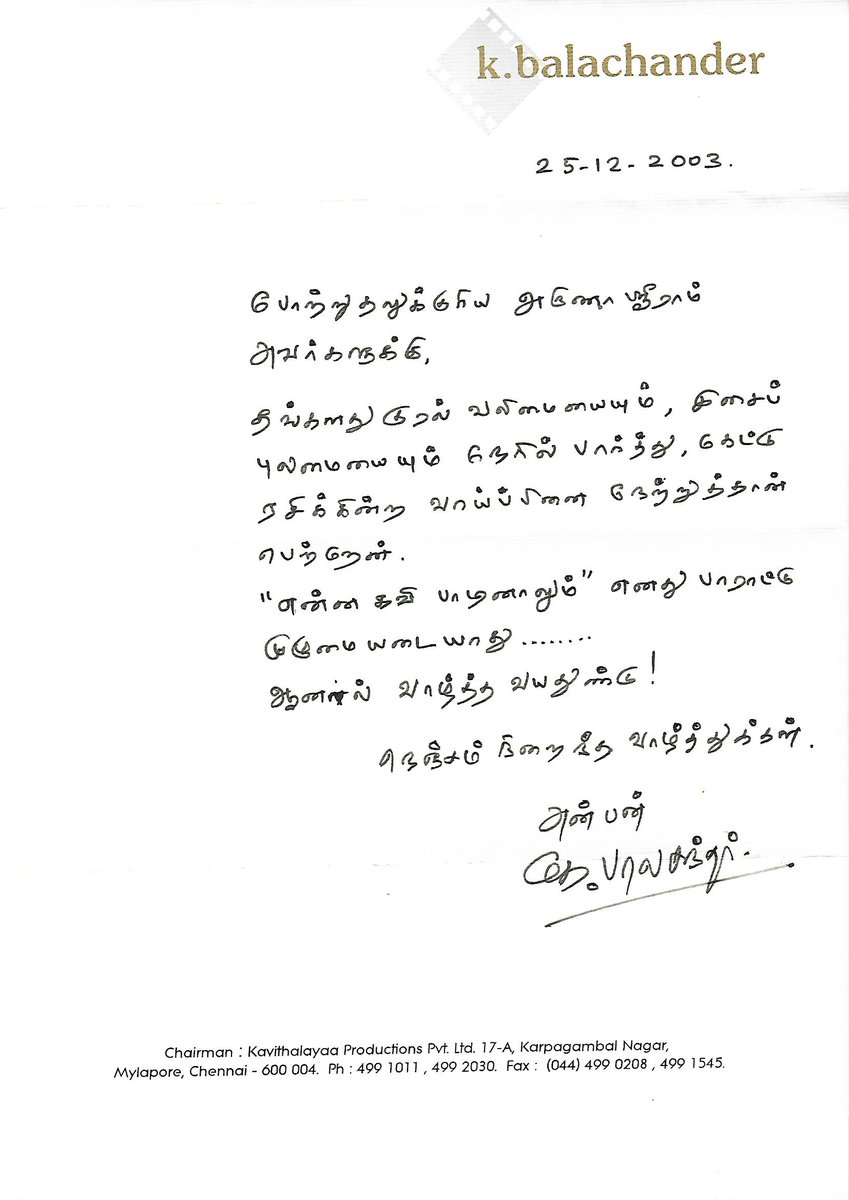 k.balachander
25-12-2003.
போற்றுதலுக்குரிய அருணா ஸ்ரீராம்
அவர்களுக்கு,
தங்களது குரல் வலிமையையும், இசைப்
புலமையையும் நேரில் பார்த்து, கேட்டு
ரசிக்கின்ற வாய்ப்பினை நேற்றுத்தான்
பெற்றேன்.
"என்ன கவி பாடினாலும்" எனது பாராட்டு
முழுமையடையாது........
ஆனால் வாழ்த்த வயதுண்டு!
நெஞ்சம் நிறைந்த வாழ்த்துக்கள்.
அன்பன்
கே.பாலசந்தர்.
Chairman : Kavithalayaa Productions Pvt. Ltd. 17-A, Karpagambal Nagar,
Mylapore, Chennai - 600 004. Ph : 499 1011 , 499 2030. Fax : (044) 499 0208 , 499 1545.